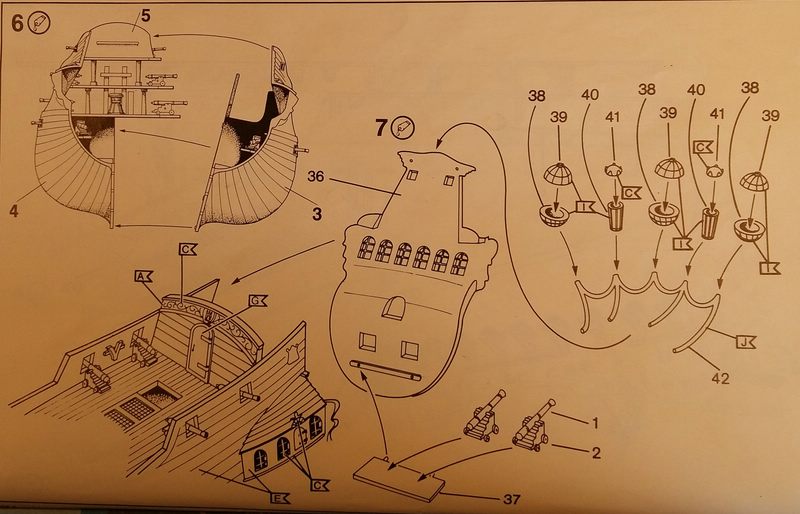 6
5
4
3
7
36
38
39
40
41
38
39
40
41
38
39
C
C
I
I
I
J
42
A
C
G
E
C
1
2
37